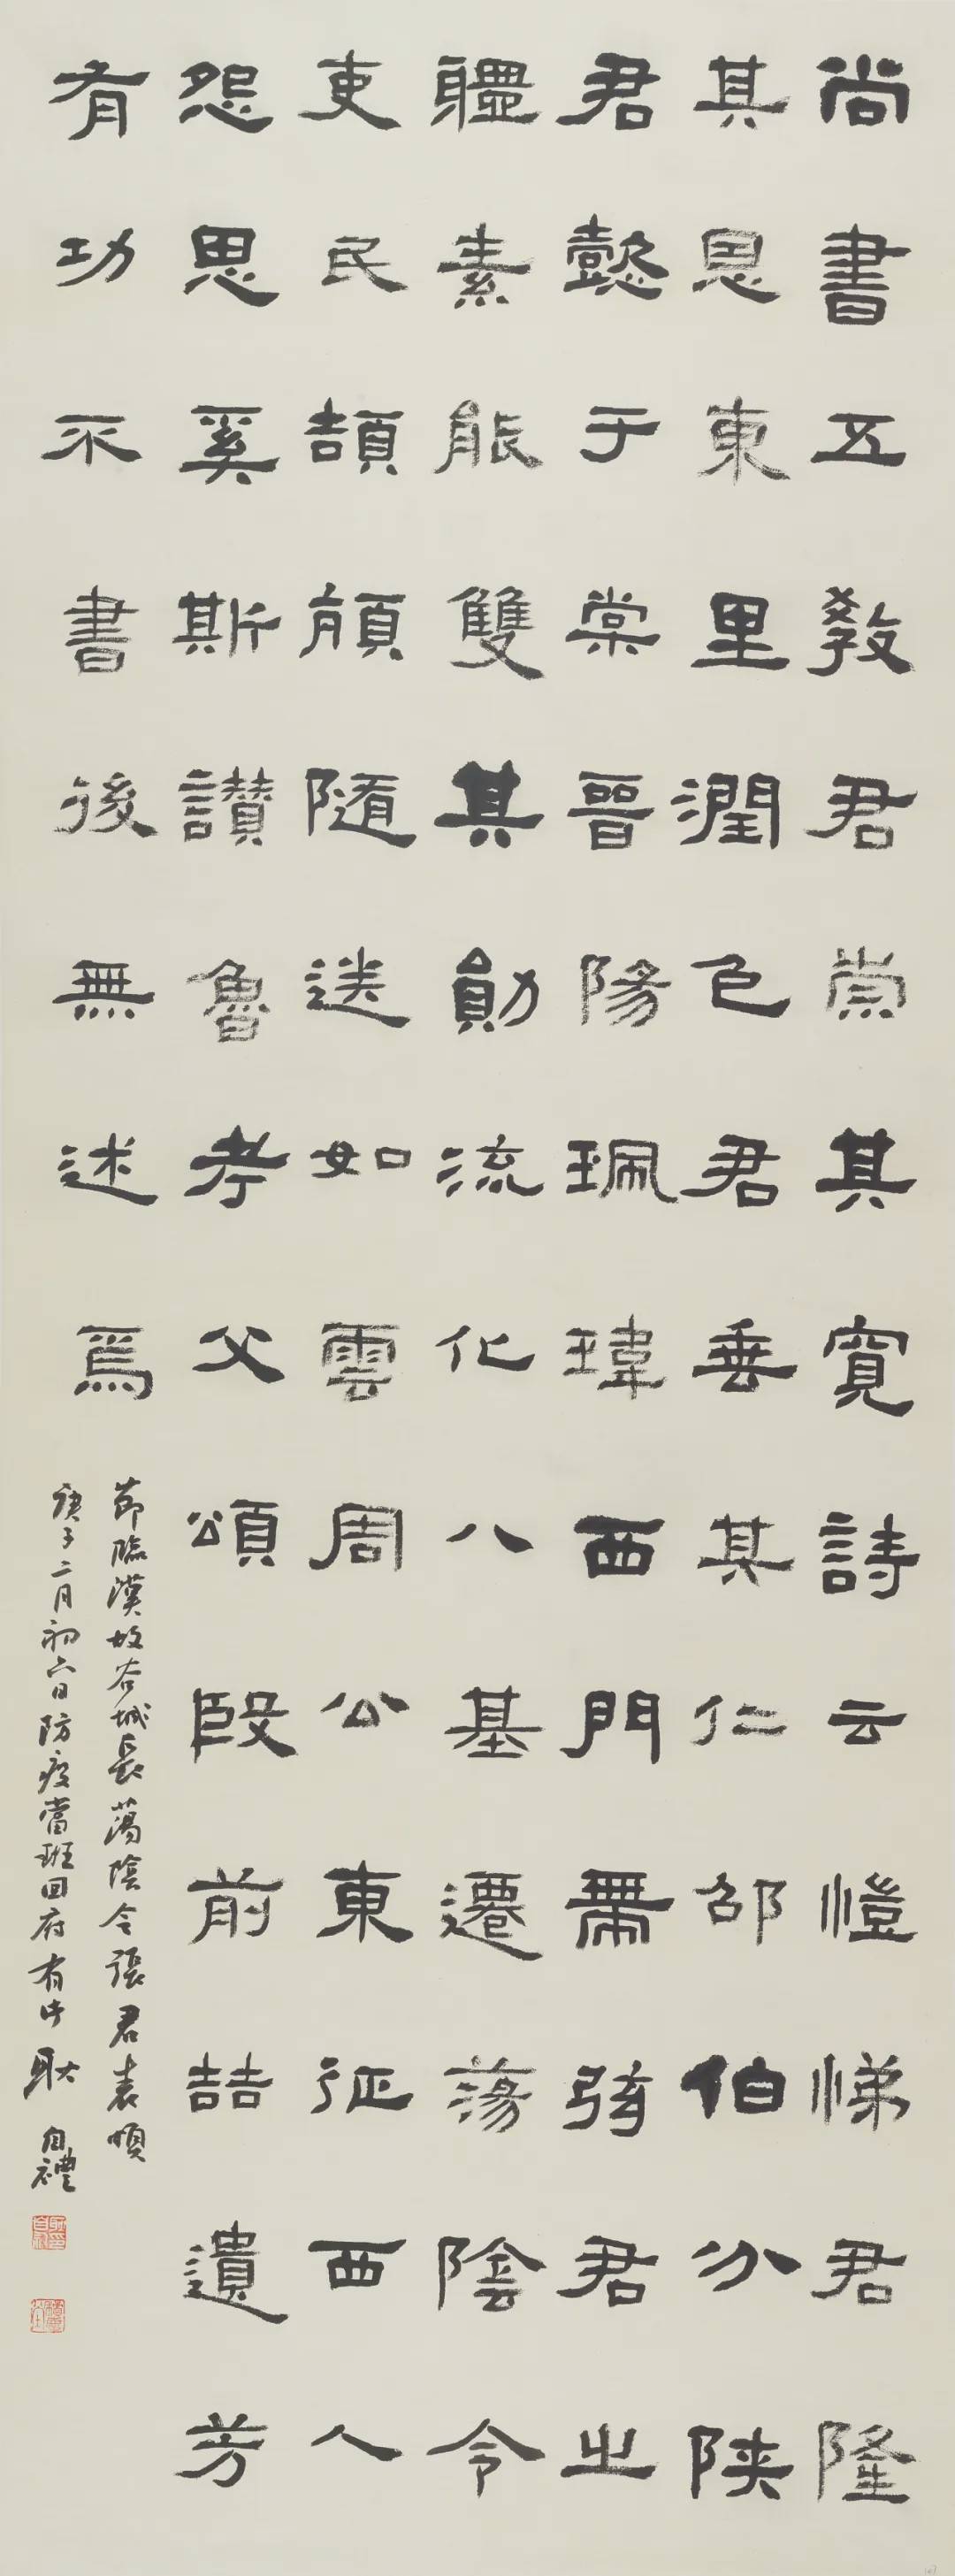 尚書五教君崇其寬詩云愷悌君隆
其恩東里潤色君垂其仁邵伯分陝
君懿于棠晉陽珮瑋西門帶弦君之
軆素能雙其勛流化八基遷蕩陰令
吏民頡頏隨送如雲周公東征西人
怨思奚斯讃魯考父頌殷前喆遺芳
有功不書後無述焉
節臨漢故谷城長蕩陰令張君表頌
庚子二月初六日防疫當班回府有中 耿自禮